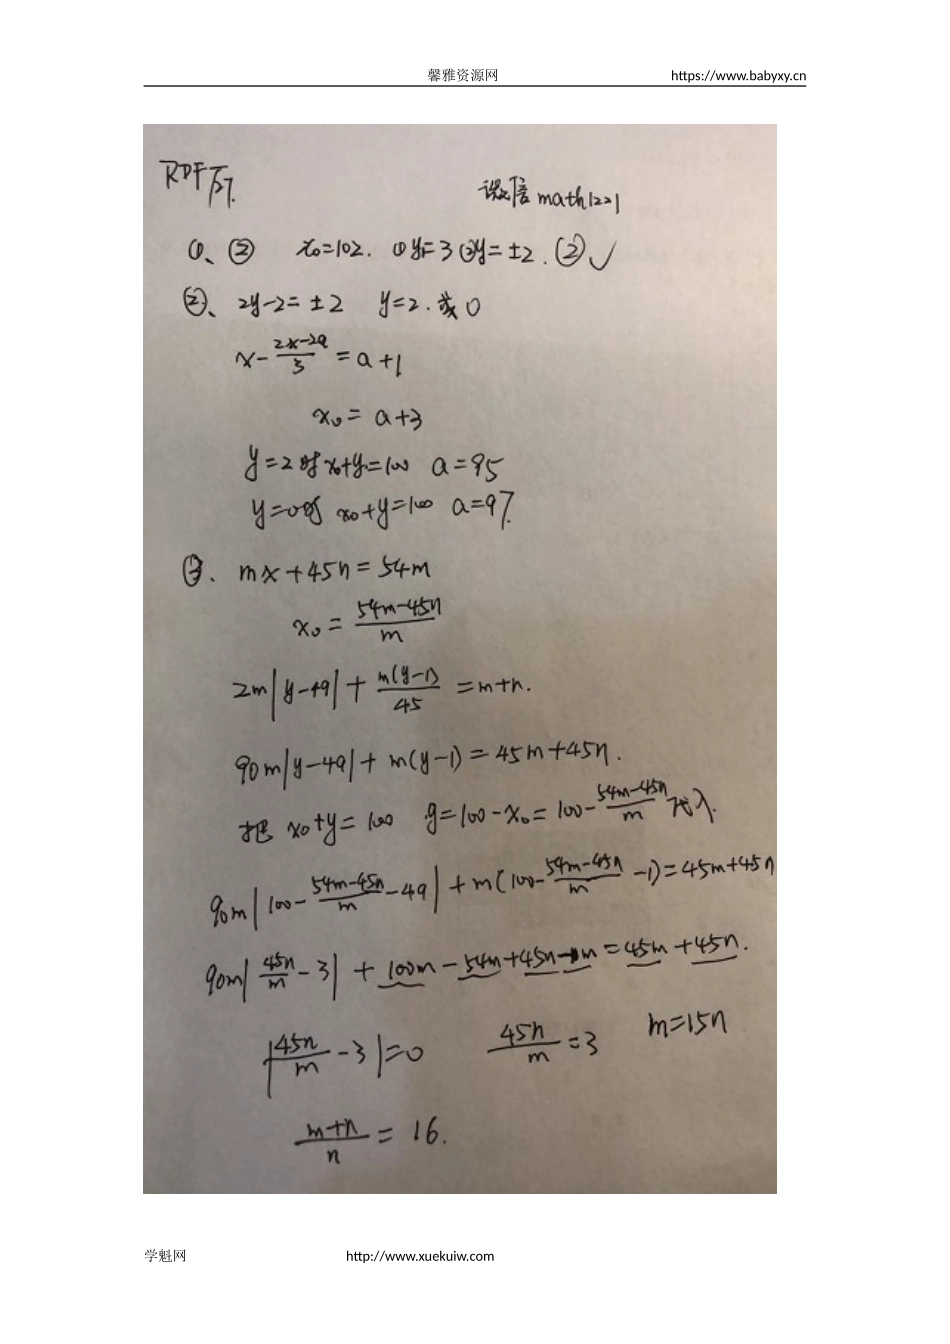 馨雅资源网 https://www.babyxy.cn
RDF/27.
微信 math1221
①、② x₀=102. ①y=3 ②y=±2. ② ✓
②、 2y-2=±2 y=2.或0
x-(2x-2a)/3=a+1
x₀=a+3
y=2时 x₀+y=100 a=95
y=0时 x₀+y=100 a=97.
③. mx+45n=54m
x₀=(54m-45n)/m
2m|y-49|+m(y-1)/45=m+n.
90m|y-49|+m(y-1)=45m+45n.
把 x₀+y=100 y=100-x₀=100-(54m-45n)/m 代入.
90m|100-(54m-45n)/m-49|+m(100-(54m-45n)/m-1)=45m+45n
90m|45n/m-3|+100m-54m+45n-m=45m+45n.
|45n/m-3|=0 45n/m=3 m=15n
(m+n)/n=16.
学魁网 http://www.xuekuiw.com